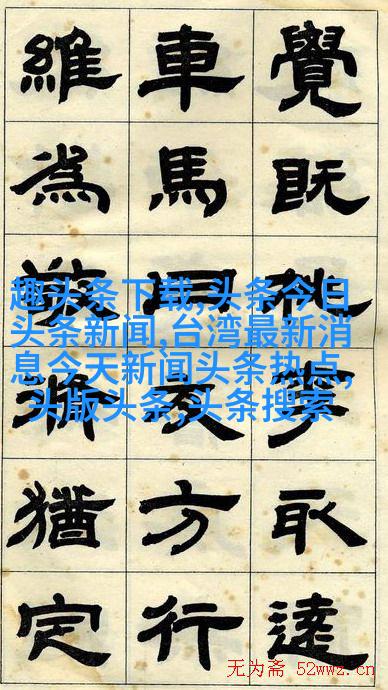 覺既取達
車馬方行
維為猶定
趣头条下载,头条今日
头条新闻,台湾最新消
息今天新闻头条热点,
头版头条,头条搜索
无为斋 52wwz.cn